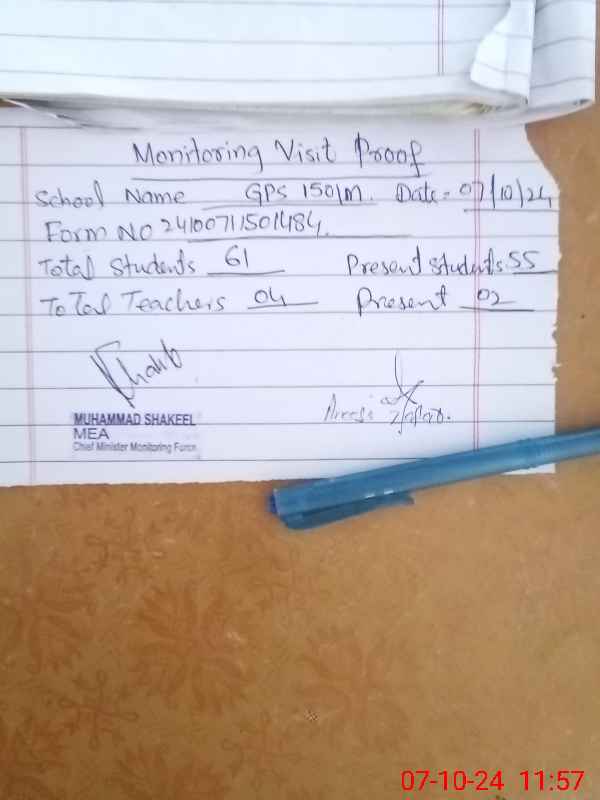 Monitoring Visit Proof
School Name GPS 150/M. Date = 07/10/24
Form No 24100711501484.
Total Students 61 Present Students 55
Total Teachers 04 Present 02
MUHAMMAD SHAKEEL
MEA
Chief Minister Monitoring Force
07-10-24 11:57